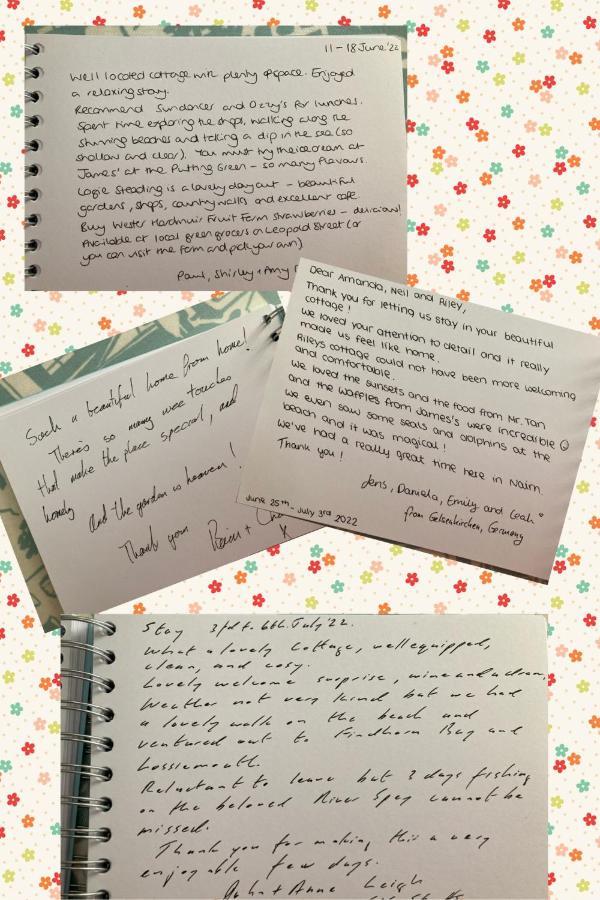 11 - 18 June '22
Well located cottage with plenty of space. Enjoyed
a relaxing stay.
Recommend Sundances and Ozzy's for lunches.
Spent time exploring the shops, walking along the
stunning beaches and taking a dip in the sea (so
shallow and clear). You must try the icecream at
James' at the Putting Green - so many flavours.
Logie Steading is a lovely day out - beautiful
gardens, shops, country walks and excellent cafe
Buy Wester Hardmuir Fruit Farm strawberries - delicious!
Available at local green grocers on Leopold Street (or
you can visit the farm and pick your own)
Paul, Shirley + Amy
Such a beautiful home from home!
There's so many wee touches
that make the place special, and
homely
and the garden is heaven!
Thank you
x
Dear Amanda, Neil and Riley,
Thank you for letting us stay in your beautiful
cottage!
We loved your attention to detail and it really
made us feel like home.
Rileys cottage could not have been more welcoming
and comfortable.
We loved the sunsets and the food from Mr. Tan
and the waffles from James's were incredible ☺
We even saw some seals and dolphins at the
beach and it was magical!
We've had a really great time here in Nairn.
Thank you!
Jens, Daniela, Emily and Leah
from Gelsenkirchen, Germany
June 25th - July 3rd 2022
Stay 3rd to 6th July '22.
What a lovely Cottage, well equipped,
clean, and cosy.
Lovely welcome surprise, wine and a dram,
Weather not very kind but we had
a lovely walk on the beach and
ventured out to Findhorn Bay and
Lossiemouth.
Reluctant to leave but 3 days fishing
on the beloved River Spey cannot be
missed.
Thank you for making this a very
enjoyable few days.
John + Anne Leigh